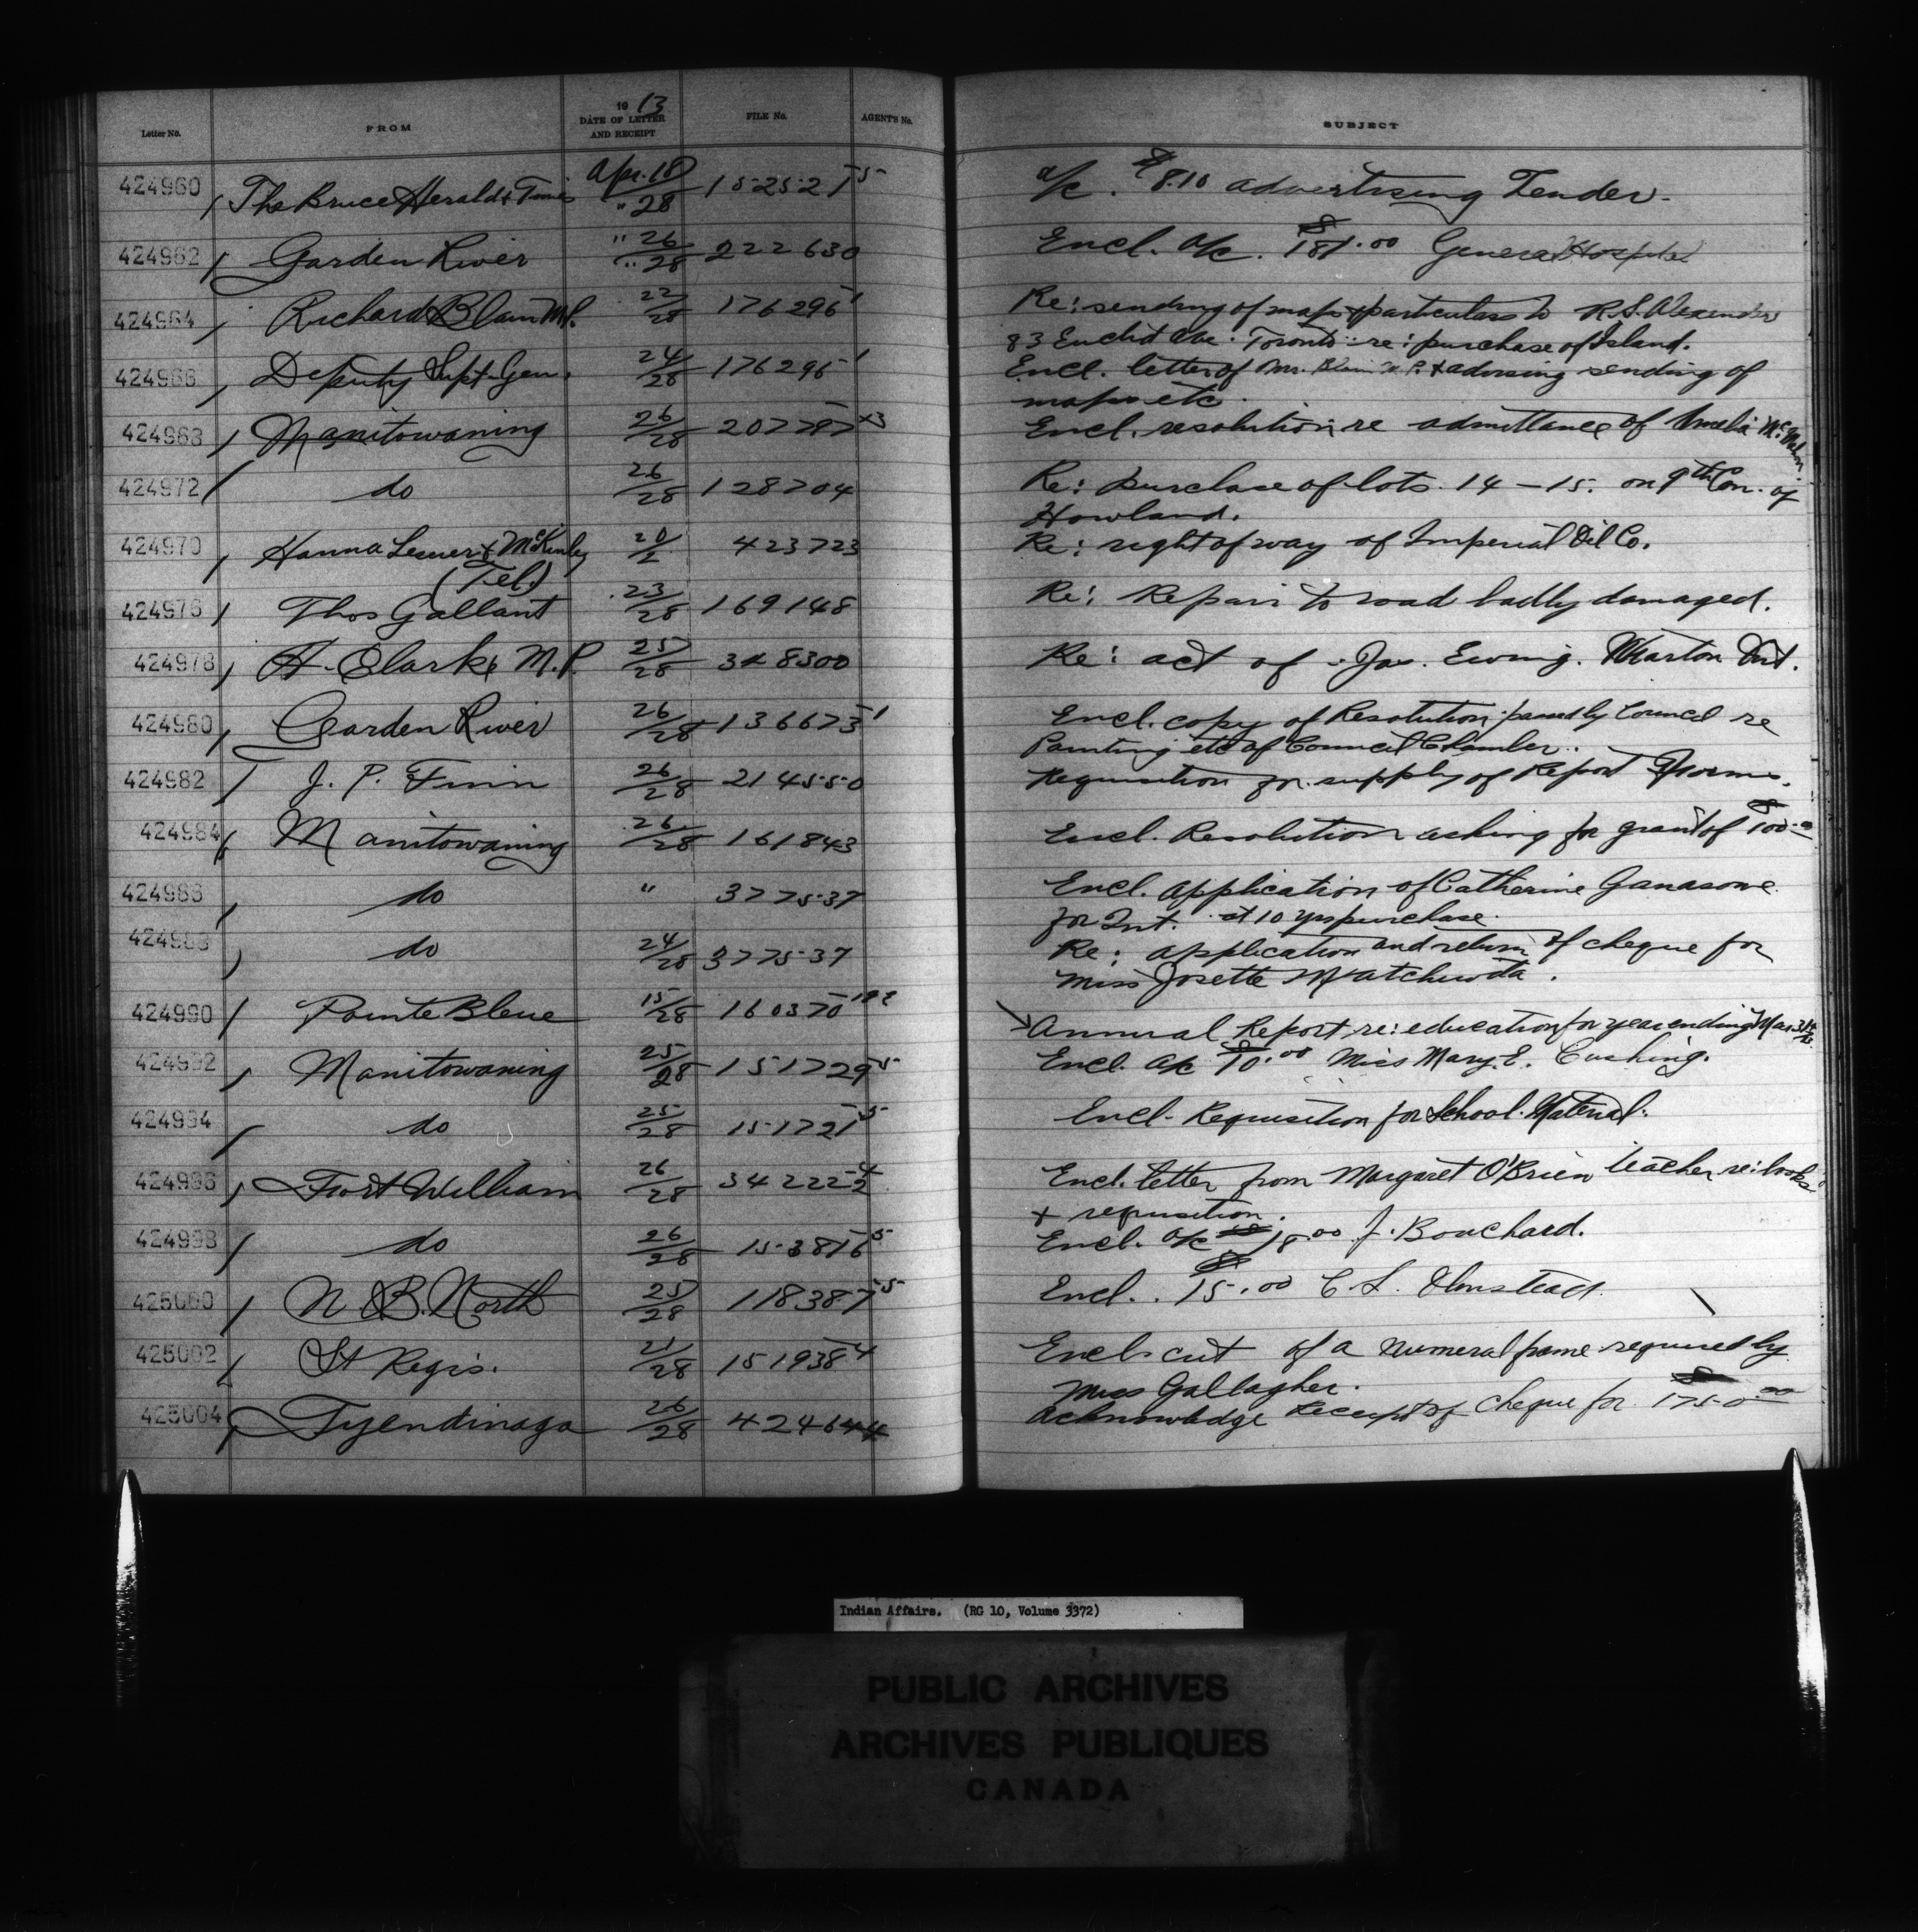 Letter No. FROM 1913 DATE OF LETTER AND RECEIPT FILE No. AGENT'S No. SUBJECT
424960 The Bruce Herald & Times Apr. 18/28 152521-5 a/c. $8.10 advertising Tender.
424962 Garden River " 26/" 28 222630 Encl. a/c. $181.00 General Hospital
424964 Richard Blain M.P. 22/28 176296-1 Re: sending of maps & particulars to R.S. Alexander
83 Euclid Ave. Toronto re: purchase of Island.
424966 Deputy Supt. Gen. 24/28 176296-1 Encl. letter of Mr. Blain M.P. & advising sending of
maps etc.
424968 Manitowaning 26/28 207797-3 Encl. resolution re admittance of Amelia
424972 do 26/28 128704 Re: purchase of lots 14 - 15. on 9th Con. of
Howland.
424970 Hanna & McKinley 423723 Re: right of way of Imperial Oil Co.
(Tel.)
424976 Thos Gallant 23/28 169148 Re: Repair to road badly damaged.
424978 A. Clarke M.P. 25/28 348300 Re: act of Jas. Ewing. Wiarton Ont.
424980 Garden River 26/28 136673-1 Encl. copy of Resolution passed by Council re
Painting etc of Council Chamber.
424982 J. P. 26/28 214550 Requisition for supply of Report Forms.
424984 Manitowaning 26/28 161843 Encl. Resolution asking for grant of $100.00
do " 377537 Encl. application of Catherine
for Int. at 10 yrs purchase.
do 24/28 377537 Re: application and return of cheque for
Miss Josette
424990 Pointe Bleue 15/28 160370 Annual Report re: education for year ending Mar. 31st
424992 Manitowaning 25/28 151729-5 Encl. a/c $10.00 Miss Mary E. Cushing.
424994 do 25/28 151721-5 Encl. Requisition for School Material.
424996 Fort William 26/28 Encl. letter from Margaret O'Brien teacher re: books
& requisition.
424998 do 26/28 153816-5 Encl. a/c 18.00 J. Bouchard.
425000 N. B. North 25/28 118387-5 Encl. $15.00 C. L. Olmstead.
425002 St Regis. 21/28 151938-4 Encl. cut of a numeral frame required by
Miss Gallagher.
425004 Tyendinaga 26/28 424644 Acknowledge receipt of Cheque for $1750.00
Indian Affairs. (RG 10, Volume 3372)
PUBLIC ARCHIVES
ARCHIVES PUBLIQUES
CANADA